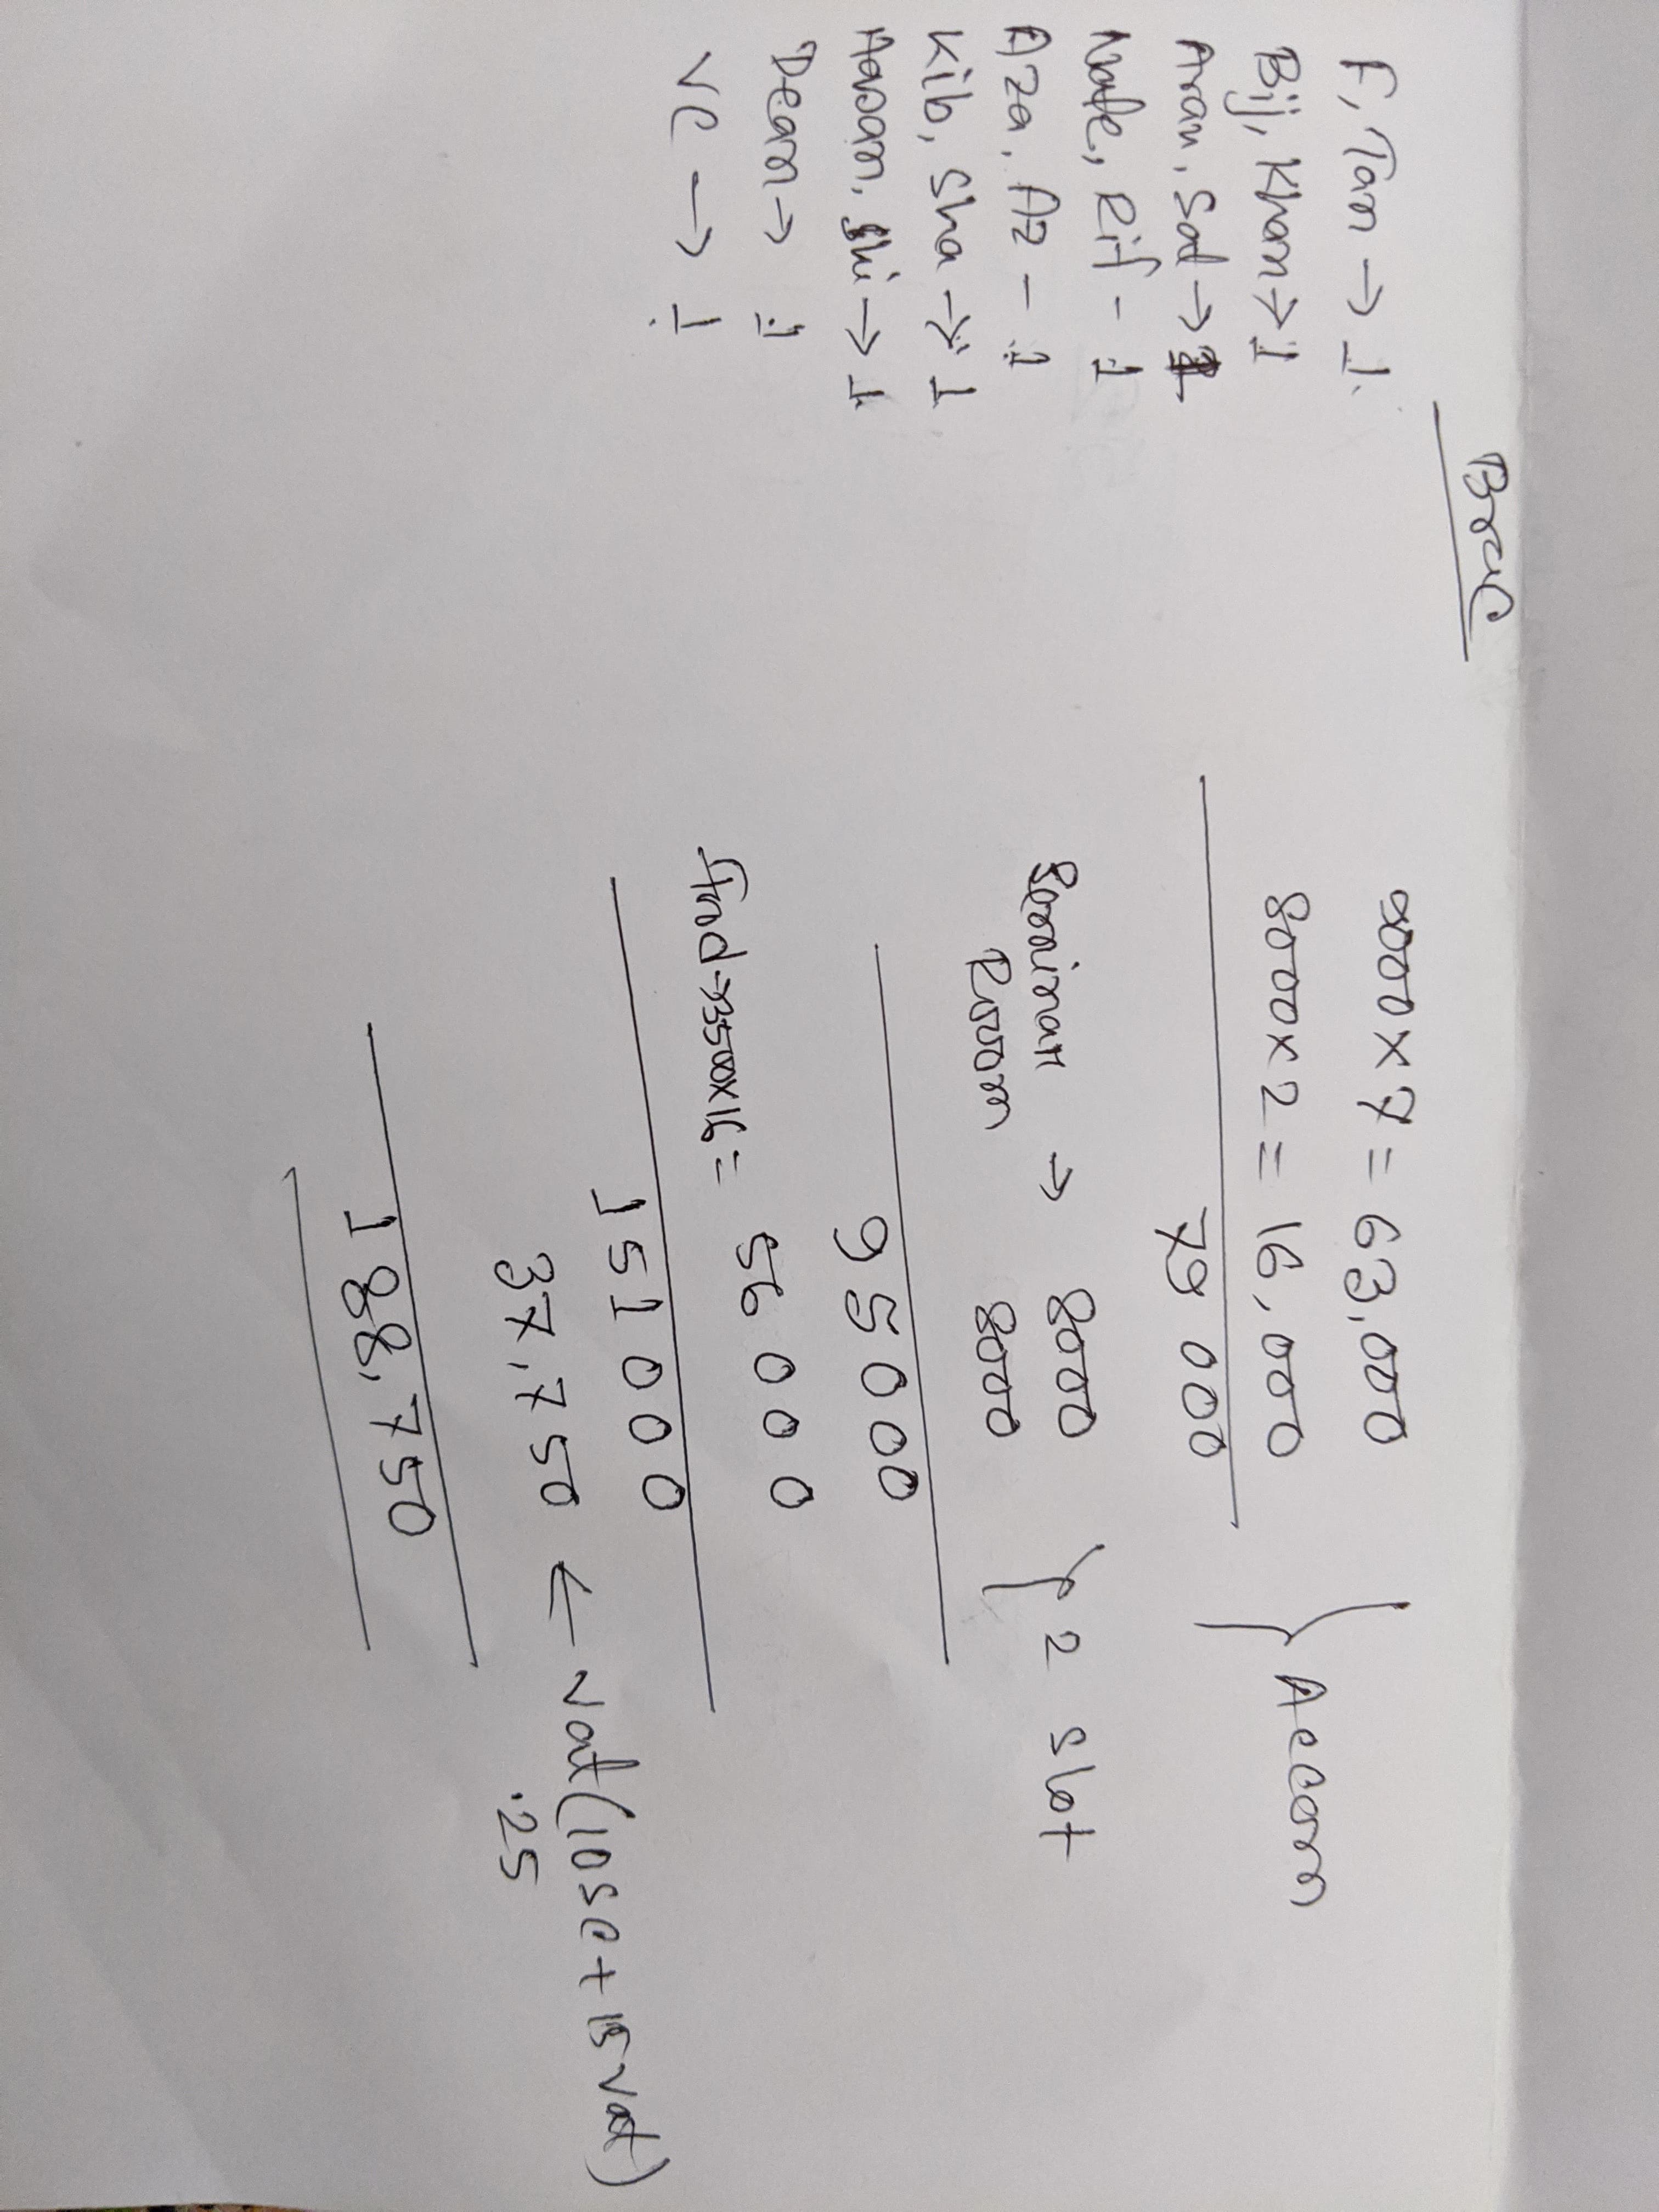 Brac
F, Tan → 1
Bij, Khan → 1
Aran, Sad → 1
Nafe, Rif - 1
Aza, Az - 1
Kib, Sha → 1
Hasan, Shi → 1
Dean → 1
VC → 1
9000 × 7 = 63,000
8000 × 2 = 16,000
} Accom
79 000
Seminar → 8000
Rooom 8000
} 2 slot
95000
Food → 3500×16 = 56 000
151000
37,750 ← vat (10 sc + 15 vat)
.25
188,750